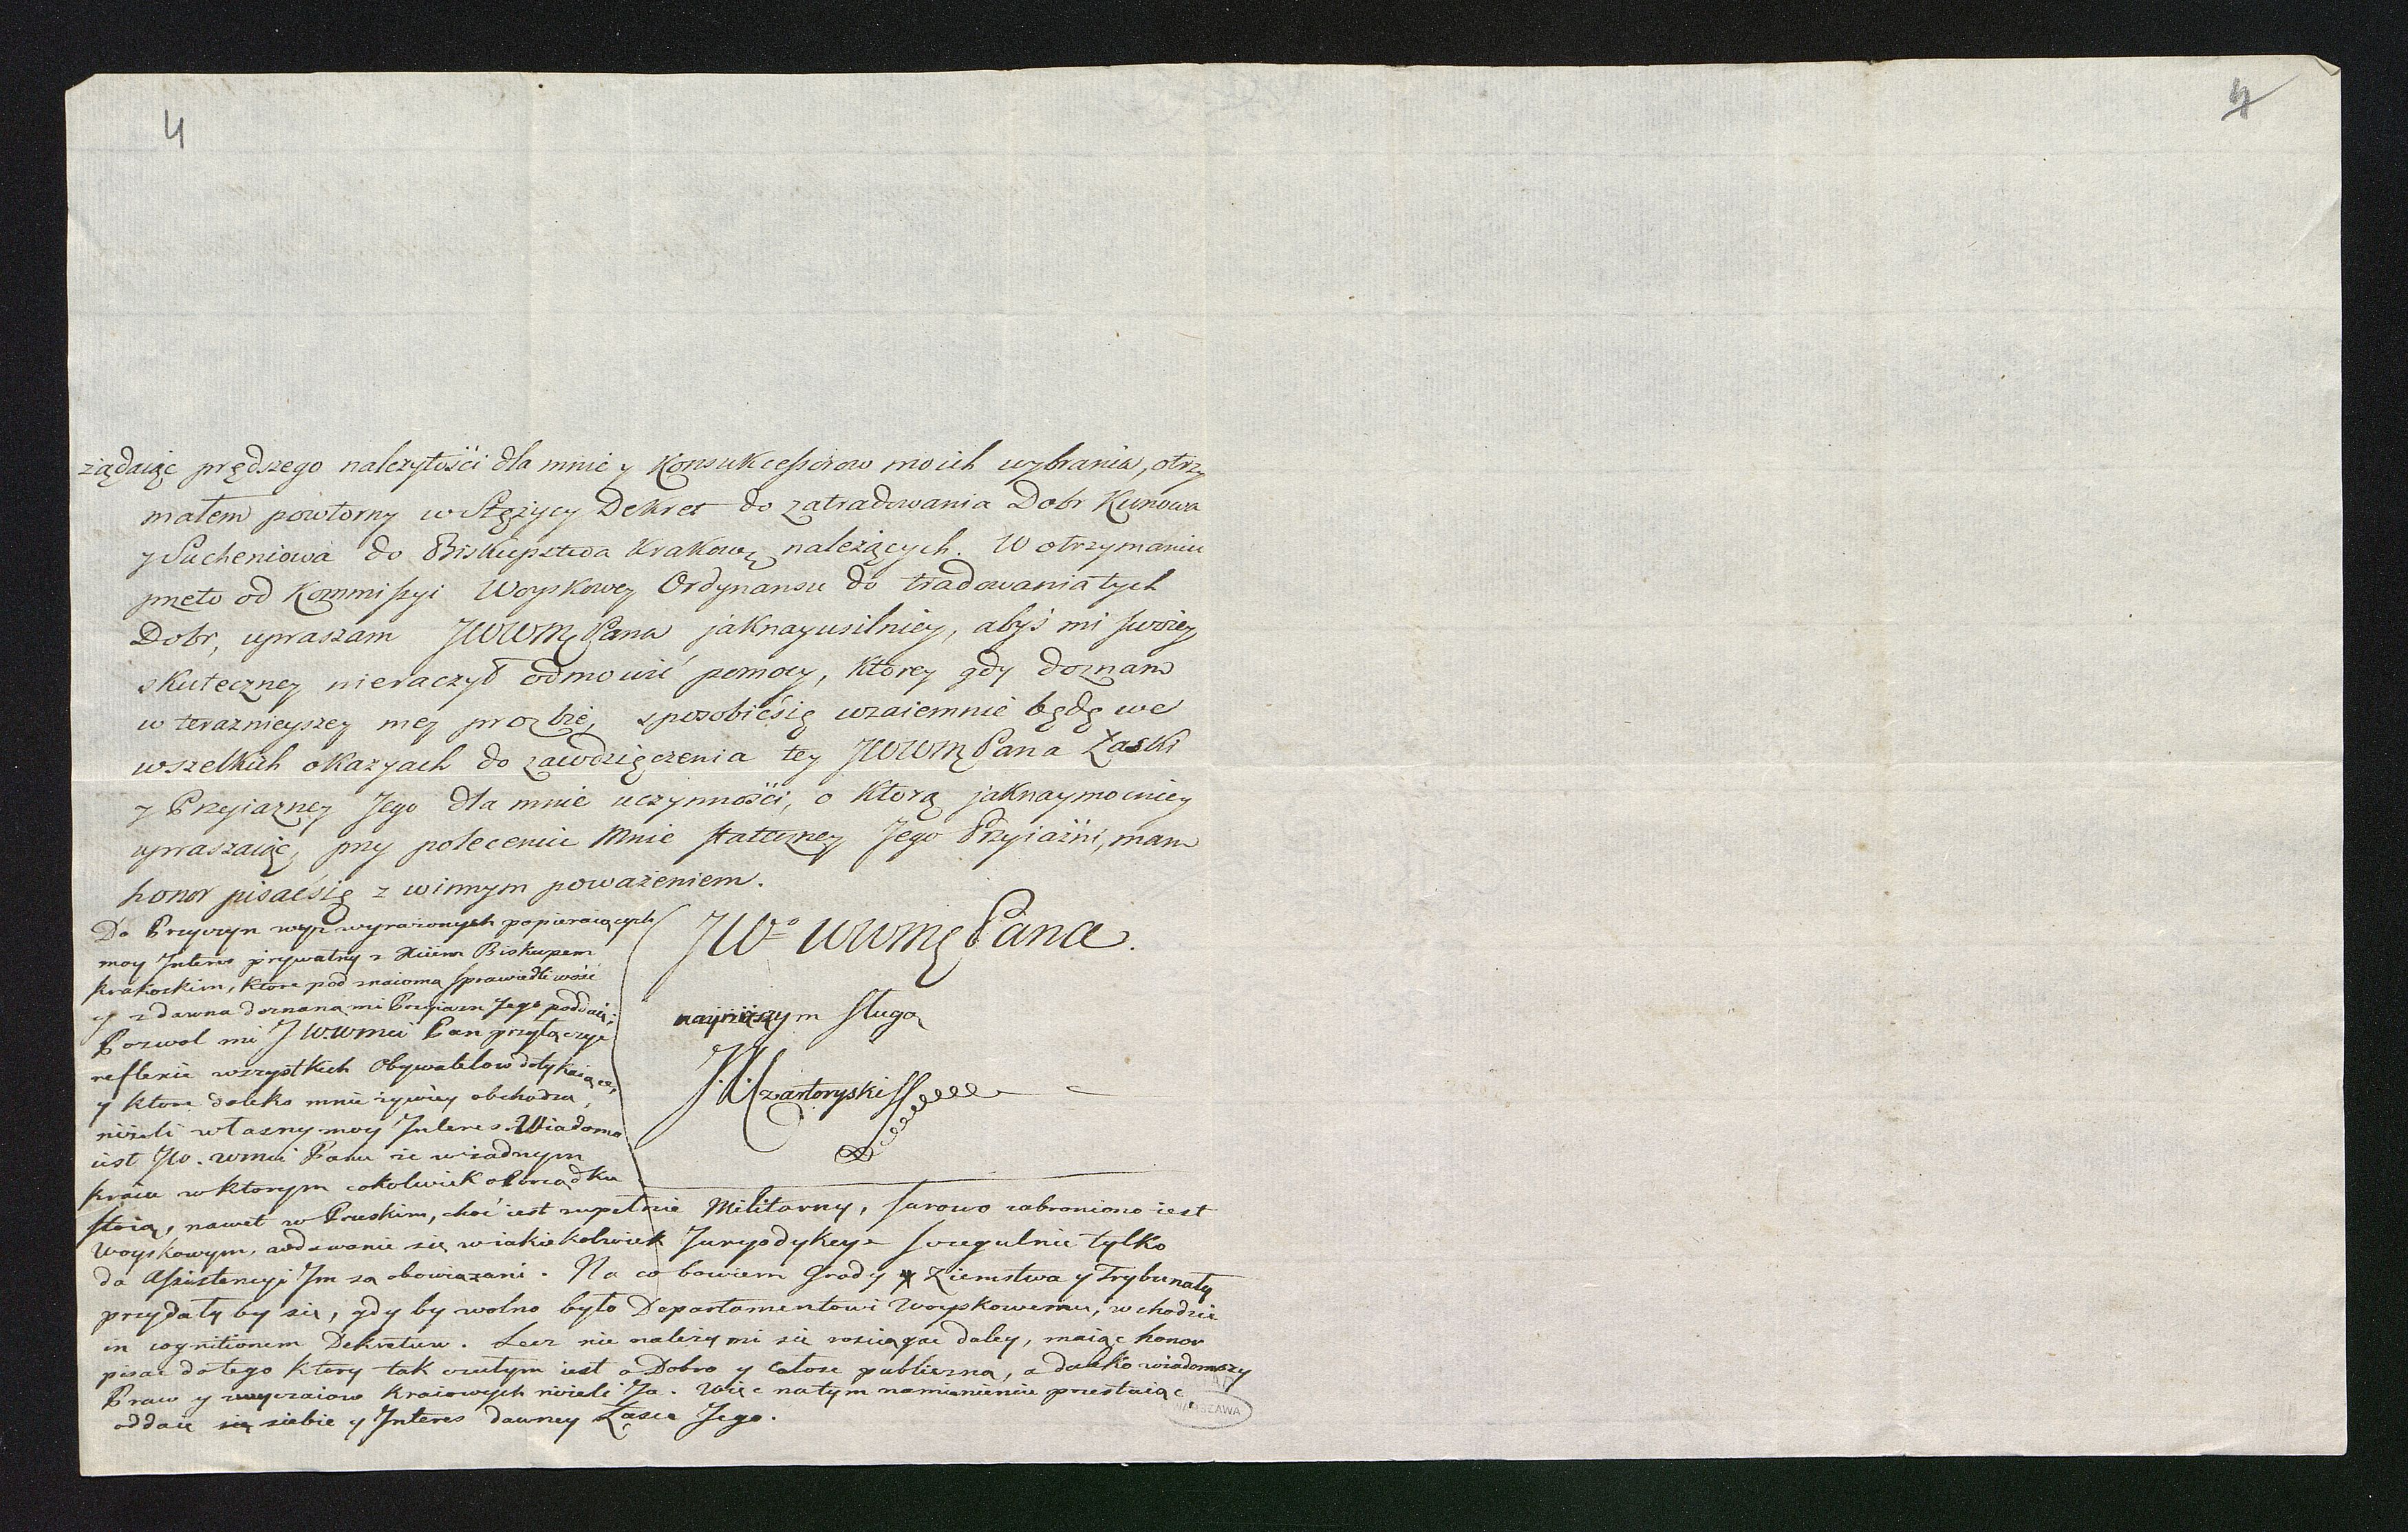 4
4
ziądaiąc prędszego nalezytości dla mnie y Konsukcessorow moich wybrania, otrzy
małem powtorny w Stężycy Dekret do zatradowania Dobr Kunowa
y Sucheniowa do Biskupstwa Krakowę należących. W otrzymaniu
przeto od Kommissyi Woyskowey Ordynansu do tradowania tych
Dobr, upraszam JWWMę Pana jaknayusilniey, abyś mi swoiey
skuteczney nieraczył odmowić pomocy, ktorey gdy doznam
w terazniejszey mey prozbie, sposobićsię wzaiemnie będę we
wszelkich okazyach do zawdzięczenia tey JWWMę Pana Łaski
y Przyiazney Jego dla mnie uczynności, o ktorą jaknaymocniey
upraszaiąc, przy poleceniu mnie stateczney Jego Przyiaźni, mam
honor pisaćsię z winnym poważeniem.
JWo WWMę Pana.
nayniższym sługą
Czartoryski
Do Przyczyn wyż wyrazonych popieraiących
moy Interes prywatny z Xciem Biskupem
Krakoskim, ktore pod znaioma sprawiedliwość
y z dawna doznaną mi Przyiazn Jego poddaię;
Pozwol mi JW. WMci Pan przyłączyc
reflexie wszystkich Obywatelow dotykaiące,
y ktore daleko mnie żywiey obchodza,
niżeli własny moy Interes. Wiadomo
iest JW. WMci Panu że w żadnym
Kraiu w ktorym cokolwiek o Porządku
stoią, nawet w Pruskim, choć iest zupełnie Militarny, surowo zabroniono iest
Woyskowym, wdawanie się w iakiekolwiek Jurysdykcye szczegulnie tylko
do Assistencyi Im są obowiązani. Na co bowiem Grody y Ziemstwa y Trybunały
przydały by się, gdy by wolno było Departamentowi Woyskowemu, wchodzic
in cognitionem Dekretuw. Lecz nie należy mi się rosciągac daley, maiąc honor
pisac do tego ktory tak czułym iest o Dobro y całosc publiczną, a daleko wiadomszy
Praw y zwyczaiow Kraiowych niżeli Ja. Więc na tym namienieniu przestaiąc
oddaię się siebie y Interes dawney Łasce Jego.
WARSZAWA